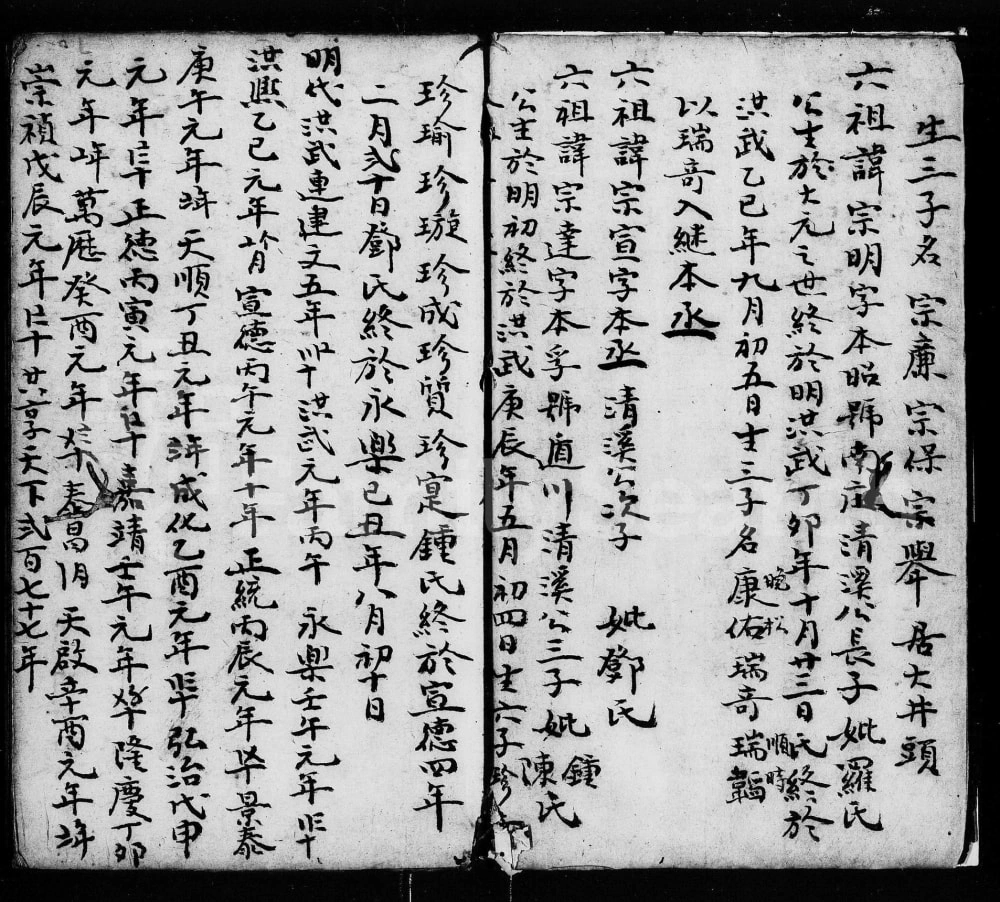 生三子名 宗廉 宗保 宗舉 居大井頭
六祖諱宗明字本昭號南庄清溪公長子妣羅氏
公生於大元之世終於明洪武丁卯年十月廿三日氏終於
洪武乙巳年九月初五日生三子名康佑瑞奇瑞韞
晚松 順時
以瑞奇入継本丞
六祖諱宗宣字本丞 清溪公次子 妣鄧氏
六祖諱宗達字本孚號遁川清溪公三子妣陳氏
鍾
公生於明初終於洪武庚辰年五月初四日生六子珍
珍瑜珍璇珍成珍質珍寔鍾氏終於宣德四年
二月弍十日鄧氏終於永樂己丑年八月初十日
明代洪武連建文五年 洪武元年丙午 永樂壬午元年
洪熙乙巳元年 宣德丙午元年十年 正統丙辰元年 景泰
庚午元年 天順丁丑元年 成化乙酉元年 弘治戊申
元年 正德丙寅元年 嘉靖壬午元年 隆慶丁卯
元年 萬厯癸酉元年 泰昌 天啟辛酉元年
崇禎戊辰元年 十 共享天下弍百七十七年